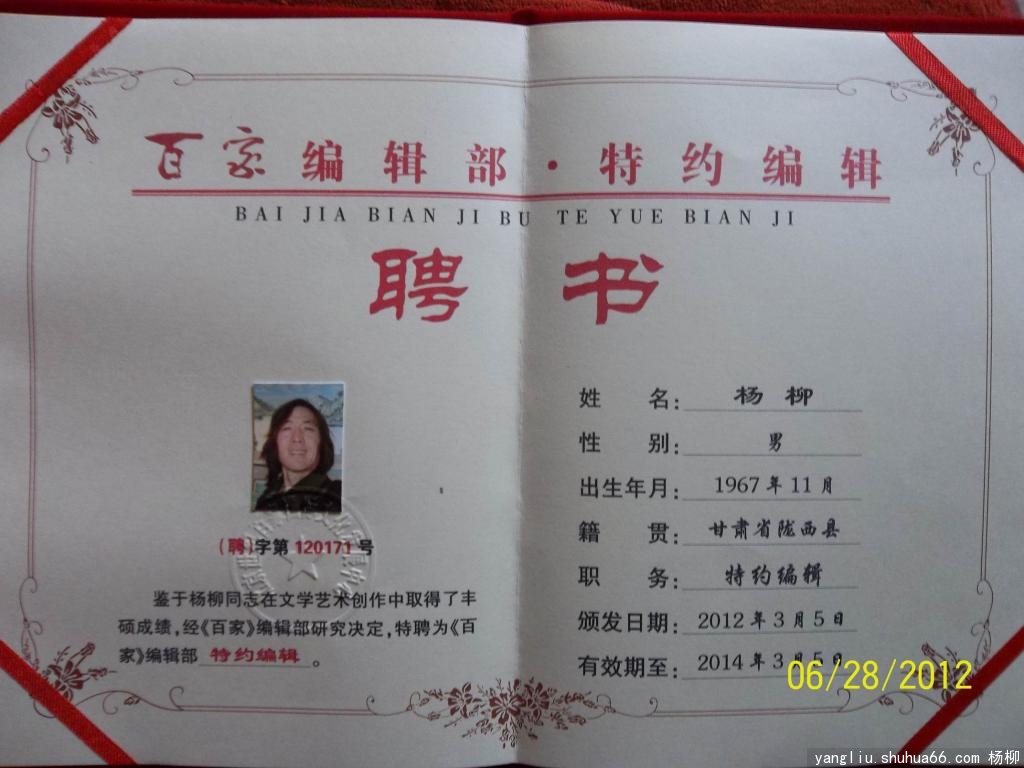 百家编辑部·特约编辑
BAI JIA BIAN JI BU TE YUE BIAN JI
聘书
(聘)字第 120171 号
鉴于杨柳同志在文学艺术创作中取得了丰
硕成绩，经《百家》编辑部研究决定，特聘为《百
家》编辑部 特约编辑 。
姓名：杨柳
性别：男
出生年月：1967年11月
籍贯：甘肃省陇西县
职务：特约编辑
颁发日期：2012年3月5日
有效期至：2014年3月5日
06/28/2012
yangliu.shuhua66.com 杨柳